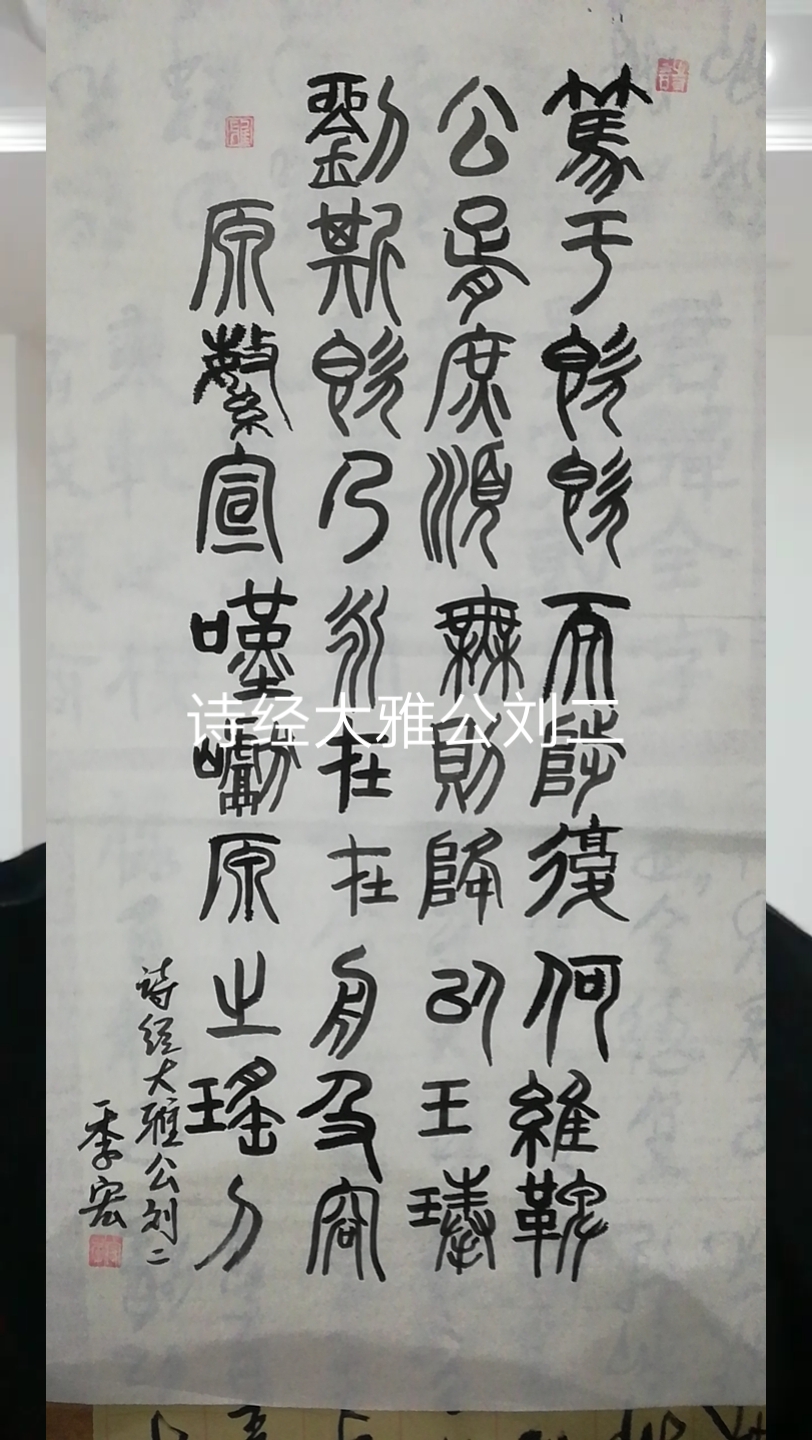 篤公劉
于胥斯原
既庶既繁
既順乃宣
而無永嘆
陟則在巘
復降在原
何以舟之
維玉及瑤
鞞琫容刀
诗经大雅公刘二
季宏
诗经大雅公刘二